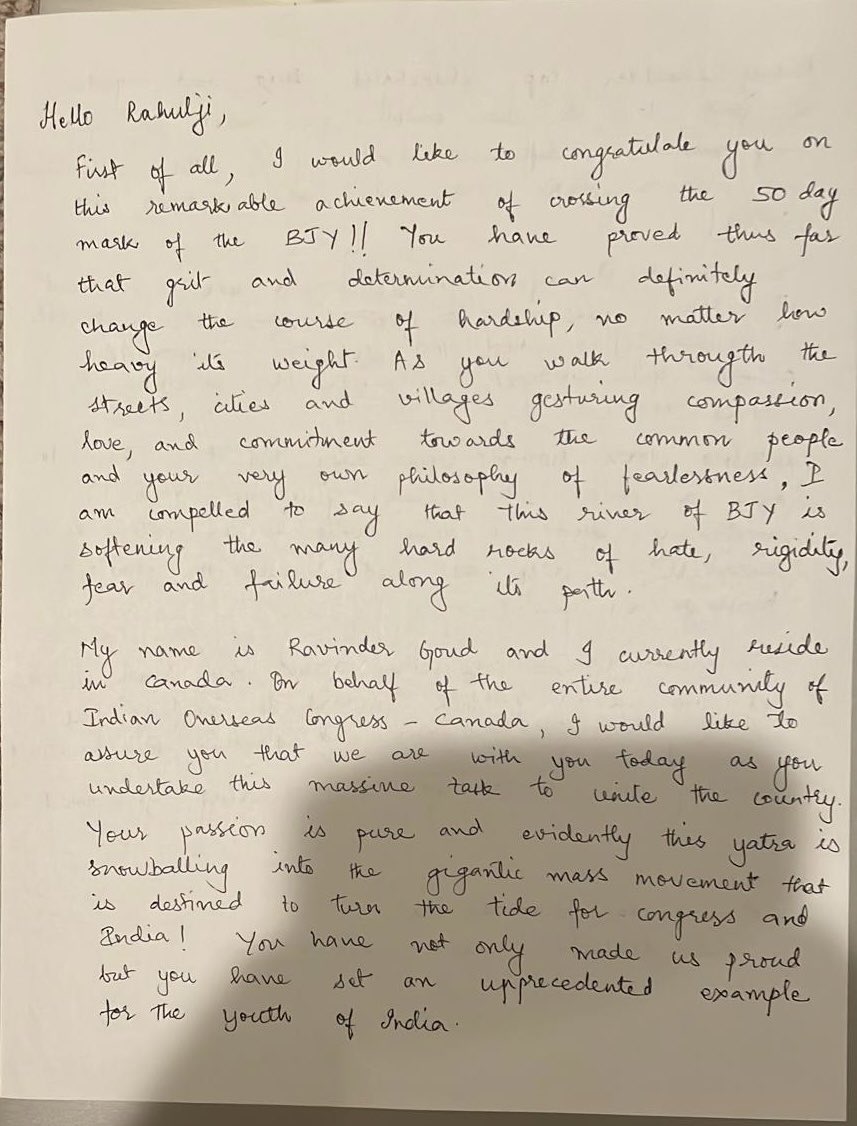 Hello Rahulji,
First of all, I would like to congratulate you on
this remarkable achievement of crossing the 50 day
mark of the BJY!! You have proved thus far
that grit and determination can definitely
change the course of hardship, no matter how
heavy its weight. As you walk througth the
streets, cities and villages gesturing compassion,
love, and commitment towards the common people
and your very own philosophy of fearlessness, I
am compelled to say that this river of BJY is
softening the many hard rocks of hate, rigidity,
fear and failure along its path.
My name is Ravinder Goud and I currently reside
in Canada. On behalf of the entire community of
Indian Overseas Congress - Canada, I would like to
assure you that we are with you today as you
undertake this massive task to unite the country.
Your passion is pure and evidently this yatra is
snowballing into the gigantic mass movement that
is destined to turn the tide for congress and
India! You have not only made us proud
but you have set an upprecedented example
for the youth of India.